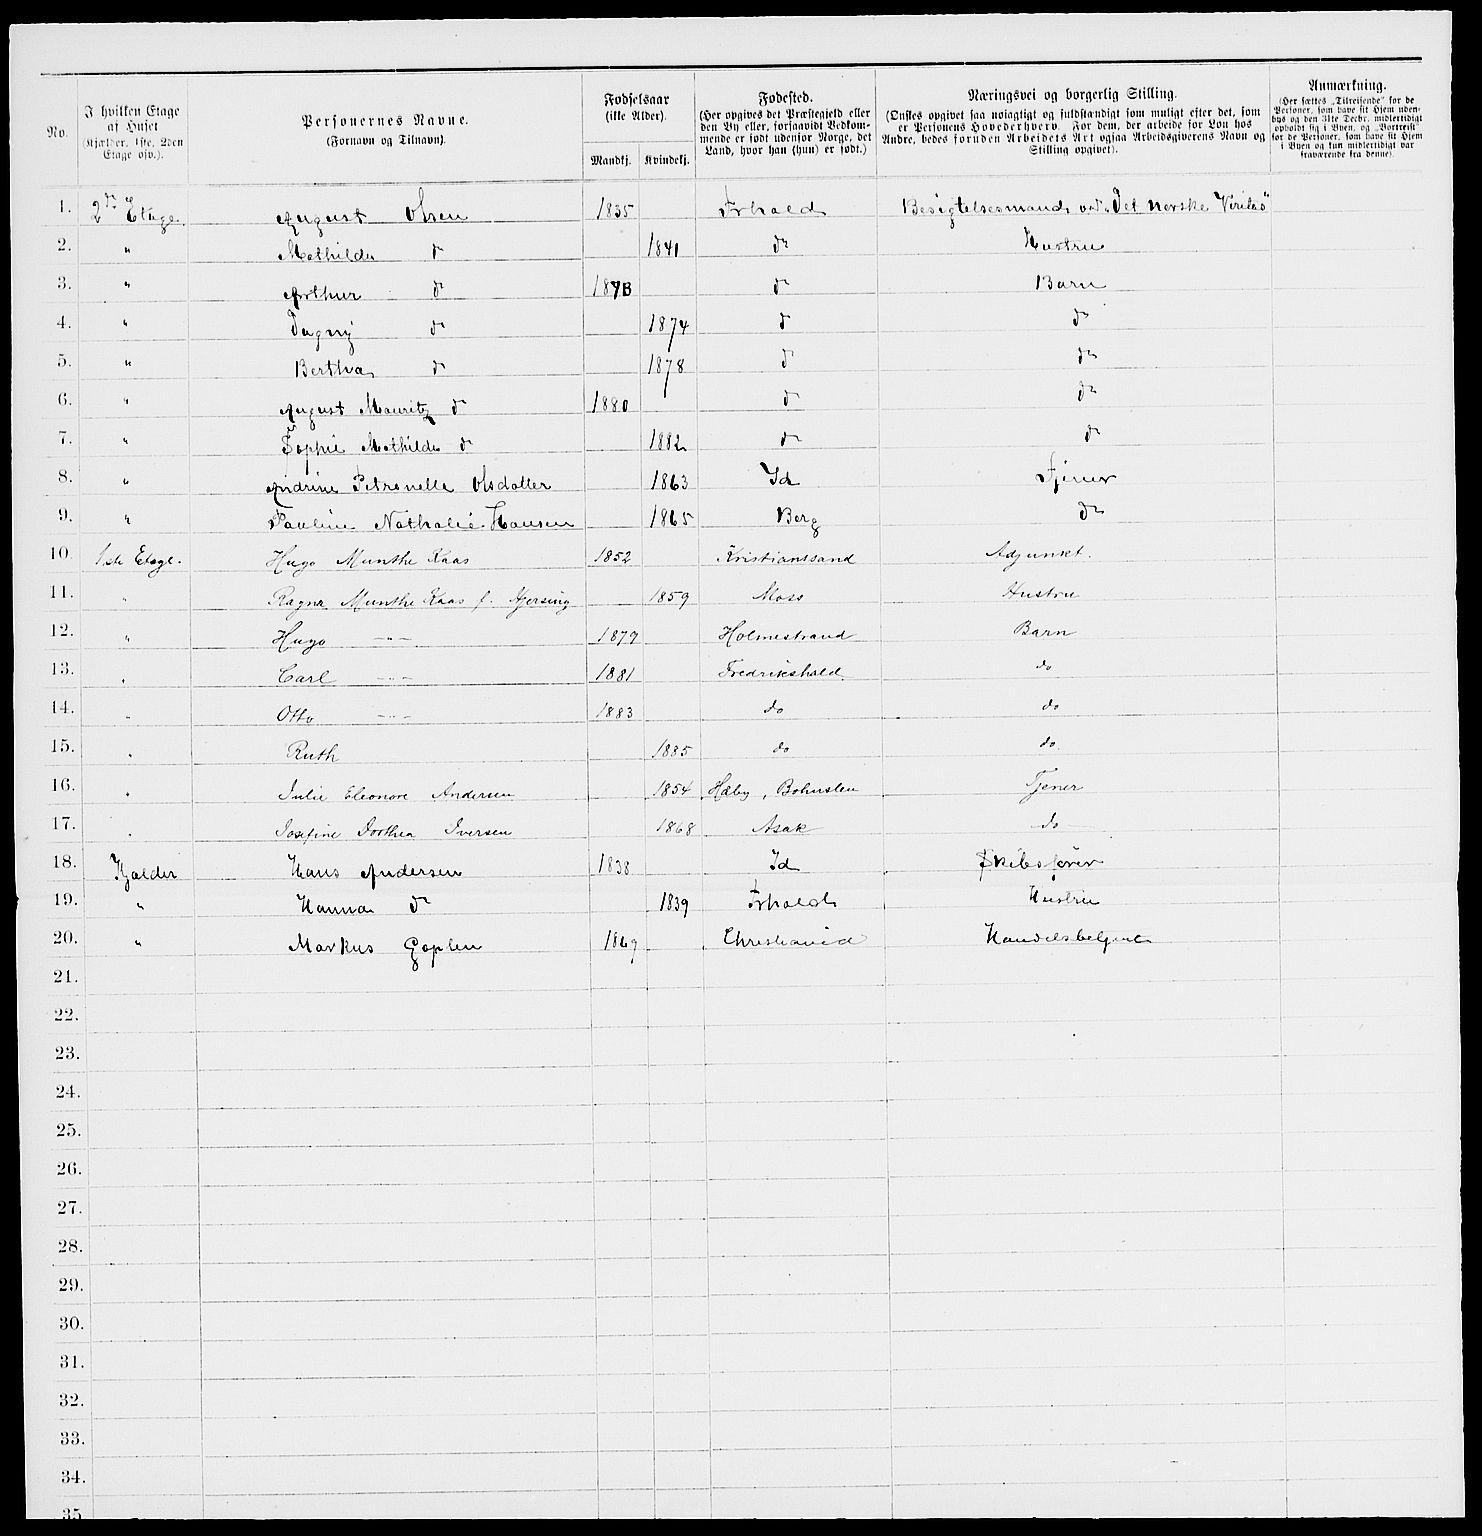 No.
I hvilken Etage af Huset (Kjælder, 1ste, 2den Etage osv.).
Personernes Navne. (Fornavn og Tilnavn).
Fødselsaar (ikke Alder). Mandkj. Kvindekj.
Fødested. (Her opgives det Præstegjeld eller den By eller, forsaavidt Vedkommende er født udenfor Norge, det Land, hvor han (hun) er født.)
Næringsvei og borgerlig Stilling. (Ønskes opgivet saa nøiagtigt og fuldstændigt som muligt efter det, som er Personens Hovederhverv. For dem, der arbeide for Løn hos Andre, bedes foruden Arbeidets Art ogsaa Arbeidsgiverens Navn og Stilling opgivet).
Anmærkning. (Her sættes „Tilreisende“ for de Personer, som have sit Hjem udenbys og den 31te Decbr. midlertidigt opholdt sig i Byen, og „Bortreist“ for de Personer, som have sit Hjem i Byen og kun midlertidigt var fraværende fra denne).
1. 2den Etage. August Olsen 1835 Frhald Besigtelsesmand ved Det norske Veritas
2. " Mathilde do 1841 do Hustru
3. " Arthur do 1873 do Barn
4. " Dagny do 1874 do do
5. " Bertha do 1878 do do
6. " August Mauritz do 1880 do do
7. " Sophie Mathilde do 1882 do do
8. " Andrine Petronelle Olsdatter 1863 Id Tjener
9. " Pauline Nathalie Hansen 1865 Berg do
10. 1ste Etage. Hugo Munthe Kaas 1852 Kristianssand Adjunkt.
11. " Ragna Munthe Kaas f. 1859 Moss Hustru
12. " Hugo —"— 1879 Holmestrand Barn
13. " Carl —"— 1881 Fredrikshald do
14. " Otto —"— 1883 do do
15. " Ruth 1885 do do
16. " Julie Eleonore Andersen 1854 Bohuslen Tjener
17. " Josefine Dorthea Iversen 1868 Asak do
18. Kjælder Hans Andersen 1838 Id Skibsfører
19. " Hanna do 1839 Frhald Hustru
20. " Markus Goplen 1869 Christiania Handelsbetjent
21.
22.
23.
24.
25.
26.
27.
28.
29.
30.
31.
32.
33.
34.
35